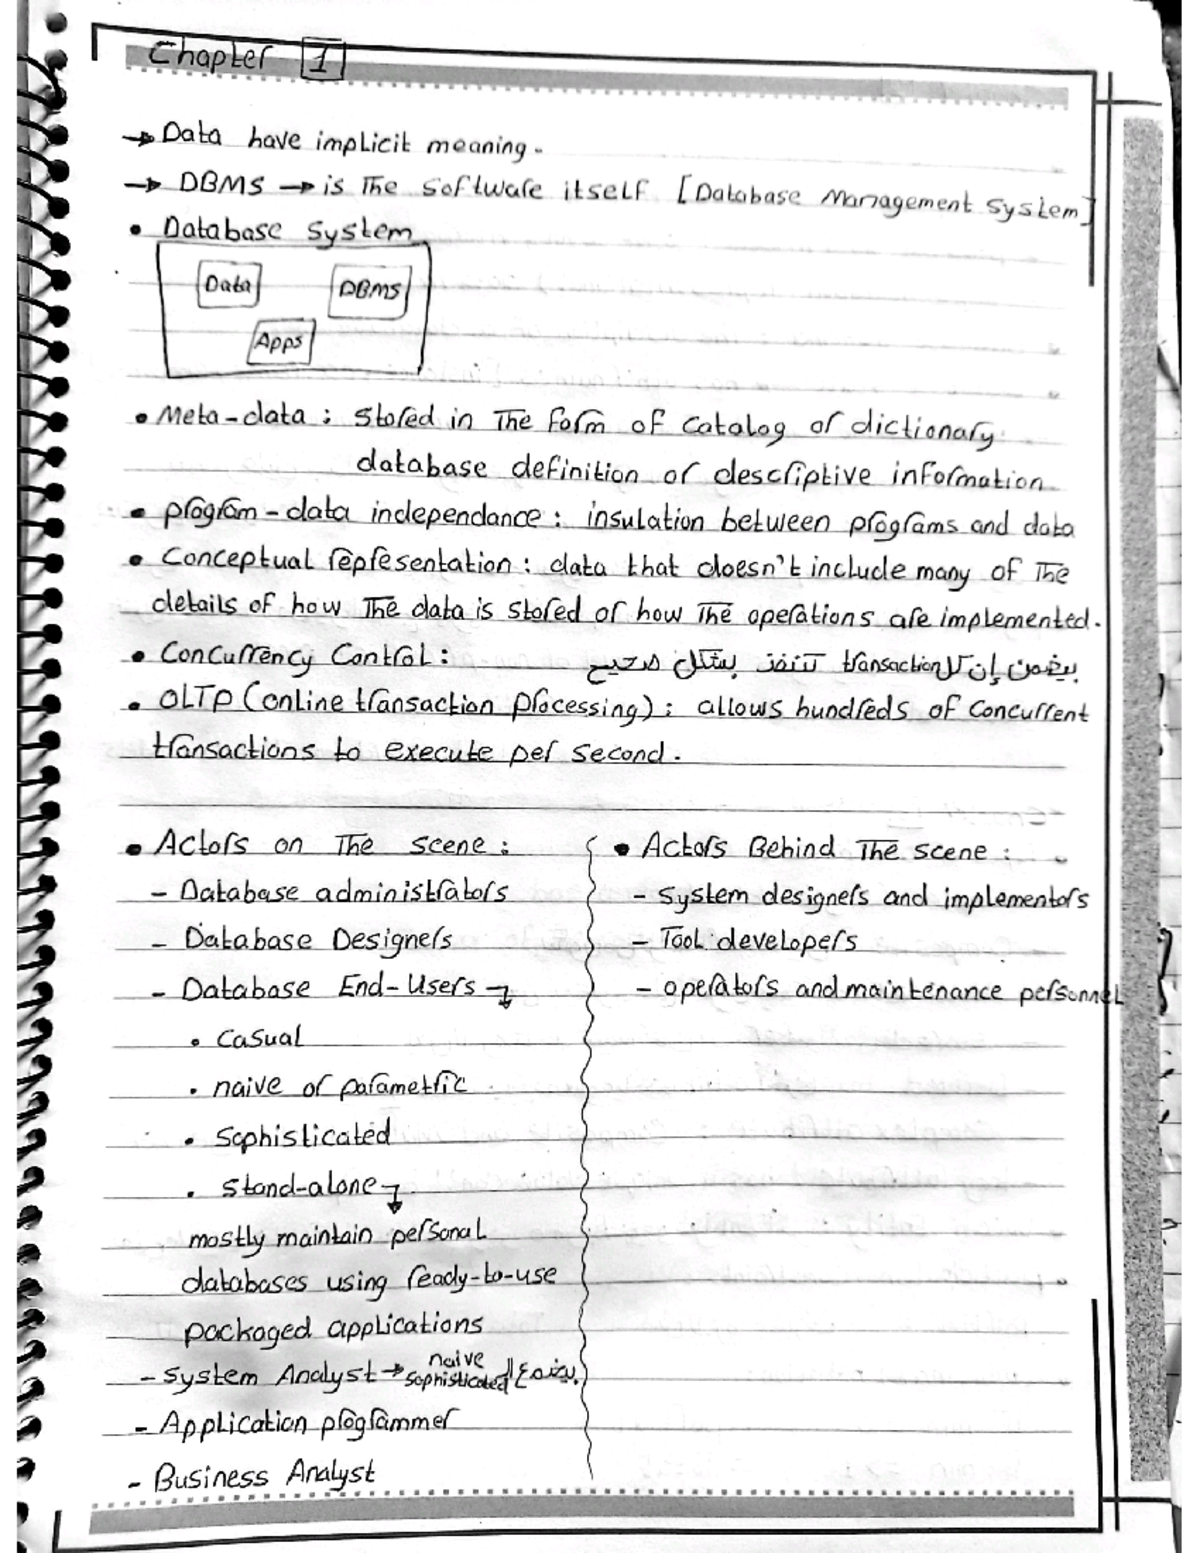 Chapter 1
→ Data have implicit meaning.
→ DBMS → is The software itself [Database Management System]
• Database System
Data DBMS
Apps
• Meta-data : stored in The form of catalog or dictionary
database definition or descriptive information
• program-data independance : insulation between programs and data
• Conceptual representation : data that doesn't include many of The
details of how The data is stored or how The operations are implemented.
• Concurrency Control : بيضمن إن كل transaction تتنفذ بشكل صحيح
• OLTP (online transaction processing) : allows hundreds of concurrent
transactions to execute per second.
• Actors on The scene :
- Database administrators
- Database Designers
- Database End-Users
• Casual
• naive or parametric
• Sophisticated
• stand-alone
mostly maintain personal
databases using ready-to-use
packaged applications
- System Analyst → naive
sophisticated
- Application programmer
- Business Analyst
• Actors Behind The scene :
- system designers and implementors
- Tool developers
- operators and maintenance personnel